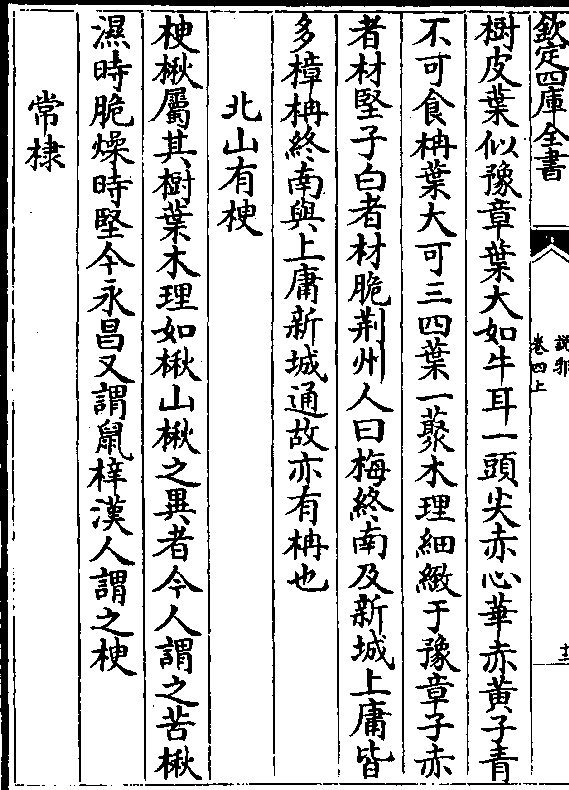 欽定四庫全書
說郛
卷四上
十二
樹皮葉似豫章葉大如牛耳一頭尖赤心華赤黃子青
不可食柟葉大可三四葉一藂木理細緻于豫章子赤
者材堅子白者材脆荆州人曰梅終南及新城上庸皆
多樟柟終南與上庸新城通故亦有柟也
北山有楰
楰楸屬其樹葉木理如楸山楸之異者今人謂之苦楸
濕時脆燥時堅今永昌又謂鼠梓漢人謂之楰
常棣